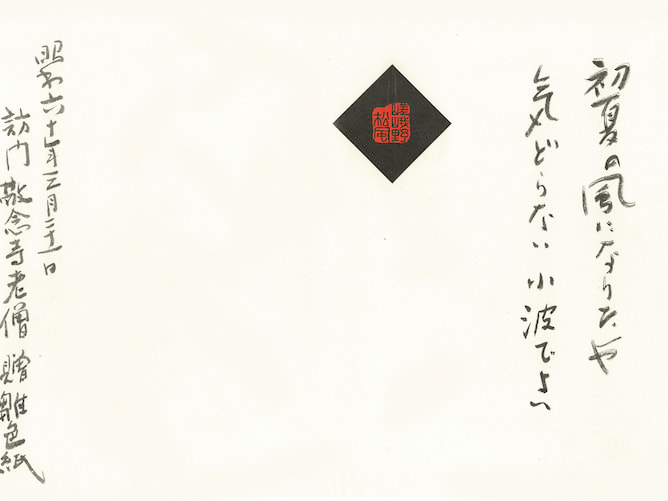 初夏の風になりたや
気どらない小波でよい
嵯峨野
松風
昭和六十年三月二十一日
訪門敬念寺老僧贈雛色紙